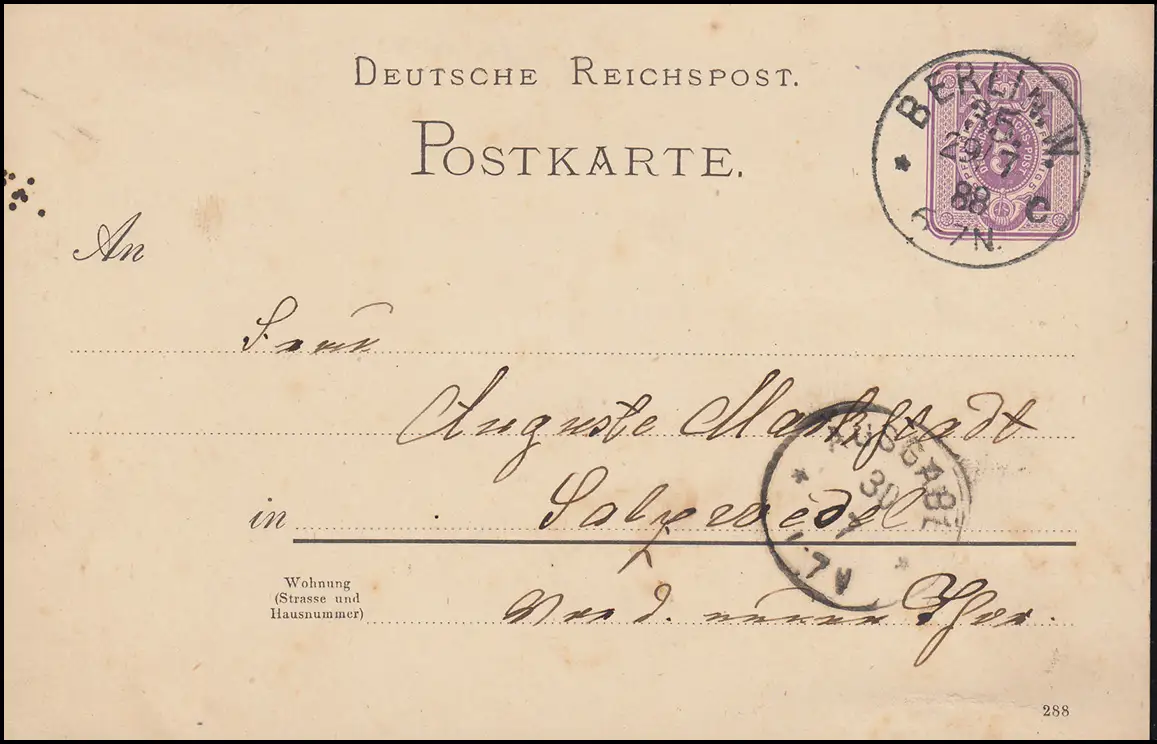 DEUTSCHE REICHSPOST.
POSTKARTE.
BERLIN.W.
35.
29/7
88 C
6-7N.
An
Auguste Markstadt
in Salzwedel
AUSGABE
30
7
Wohnung
(Strasse und
Hausnummer)
vor d. neuen Thor.
288